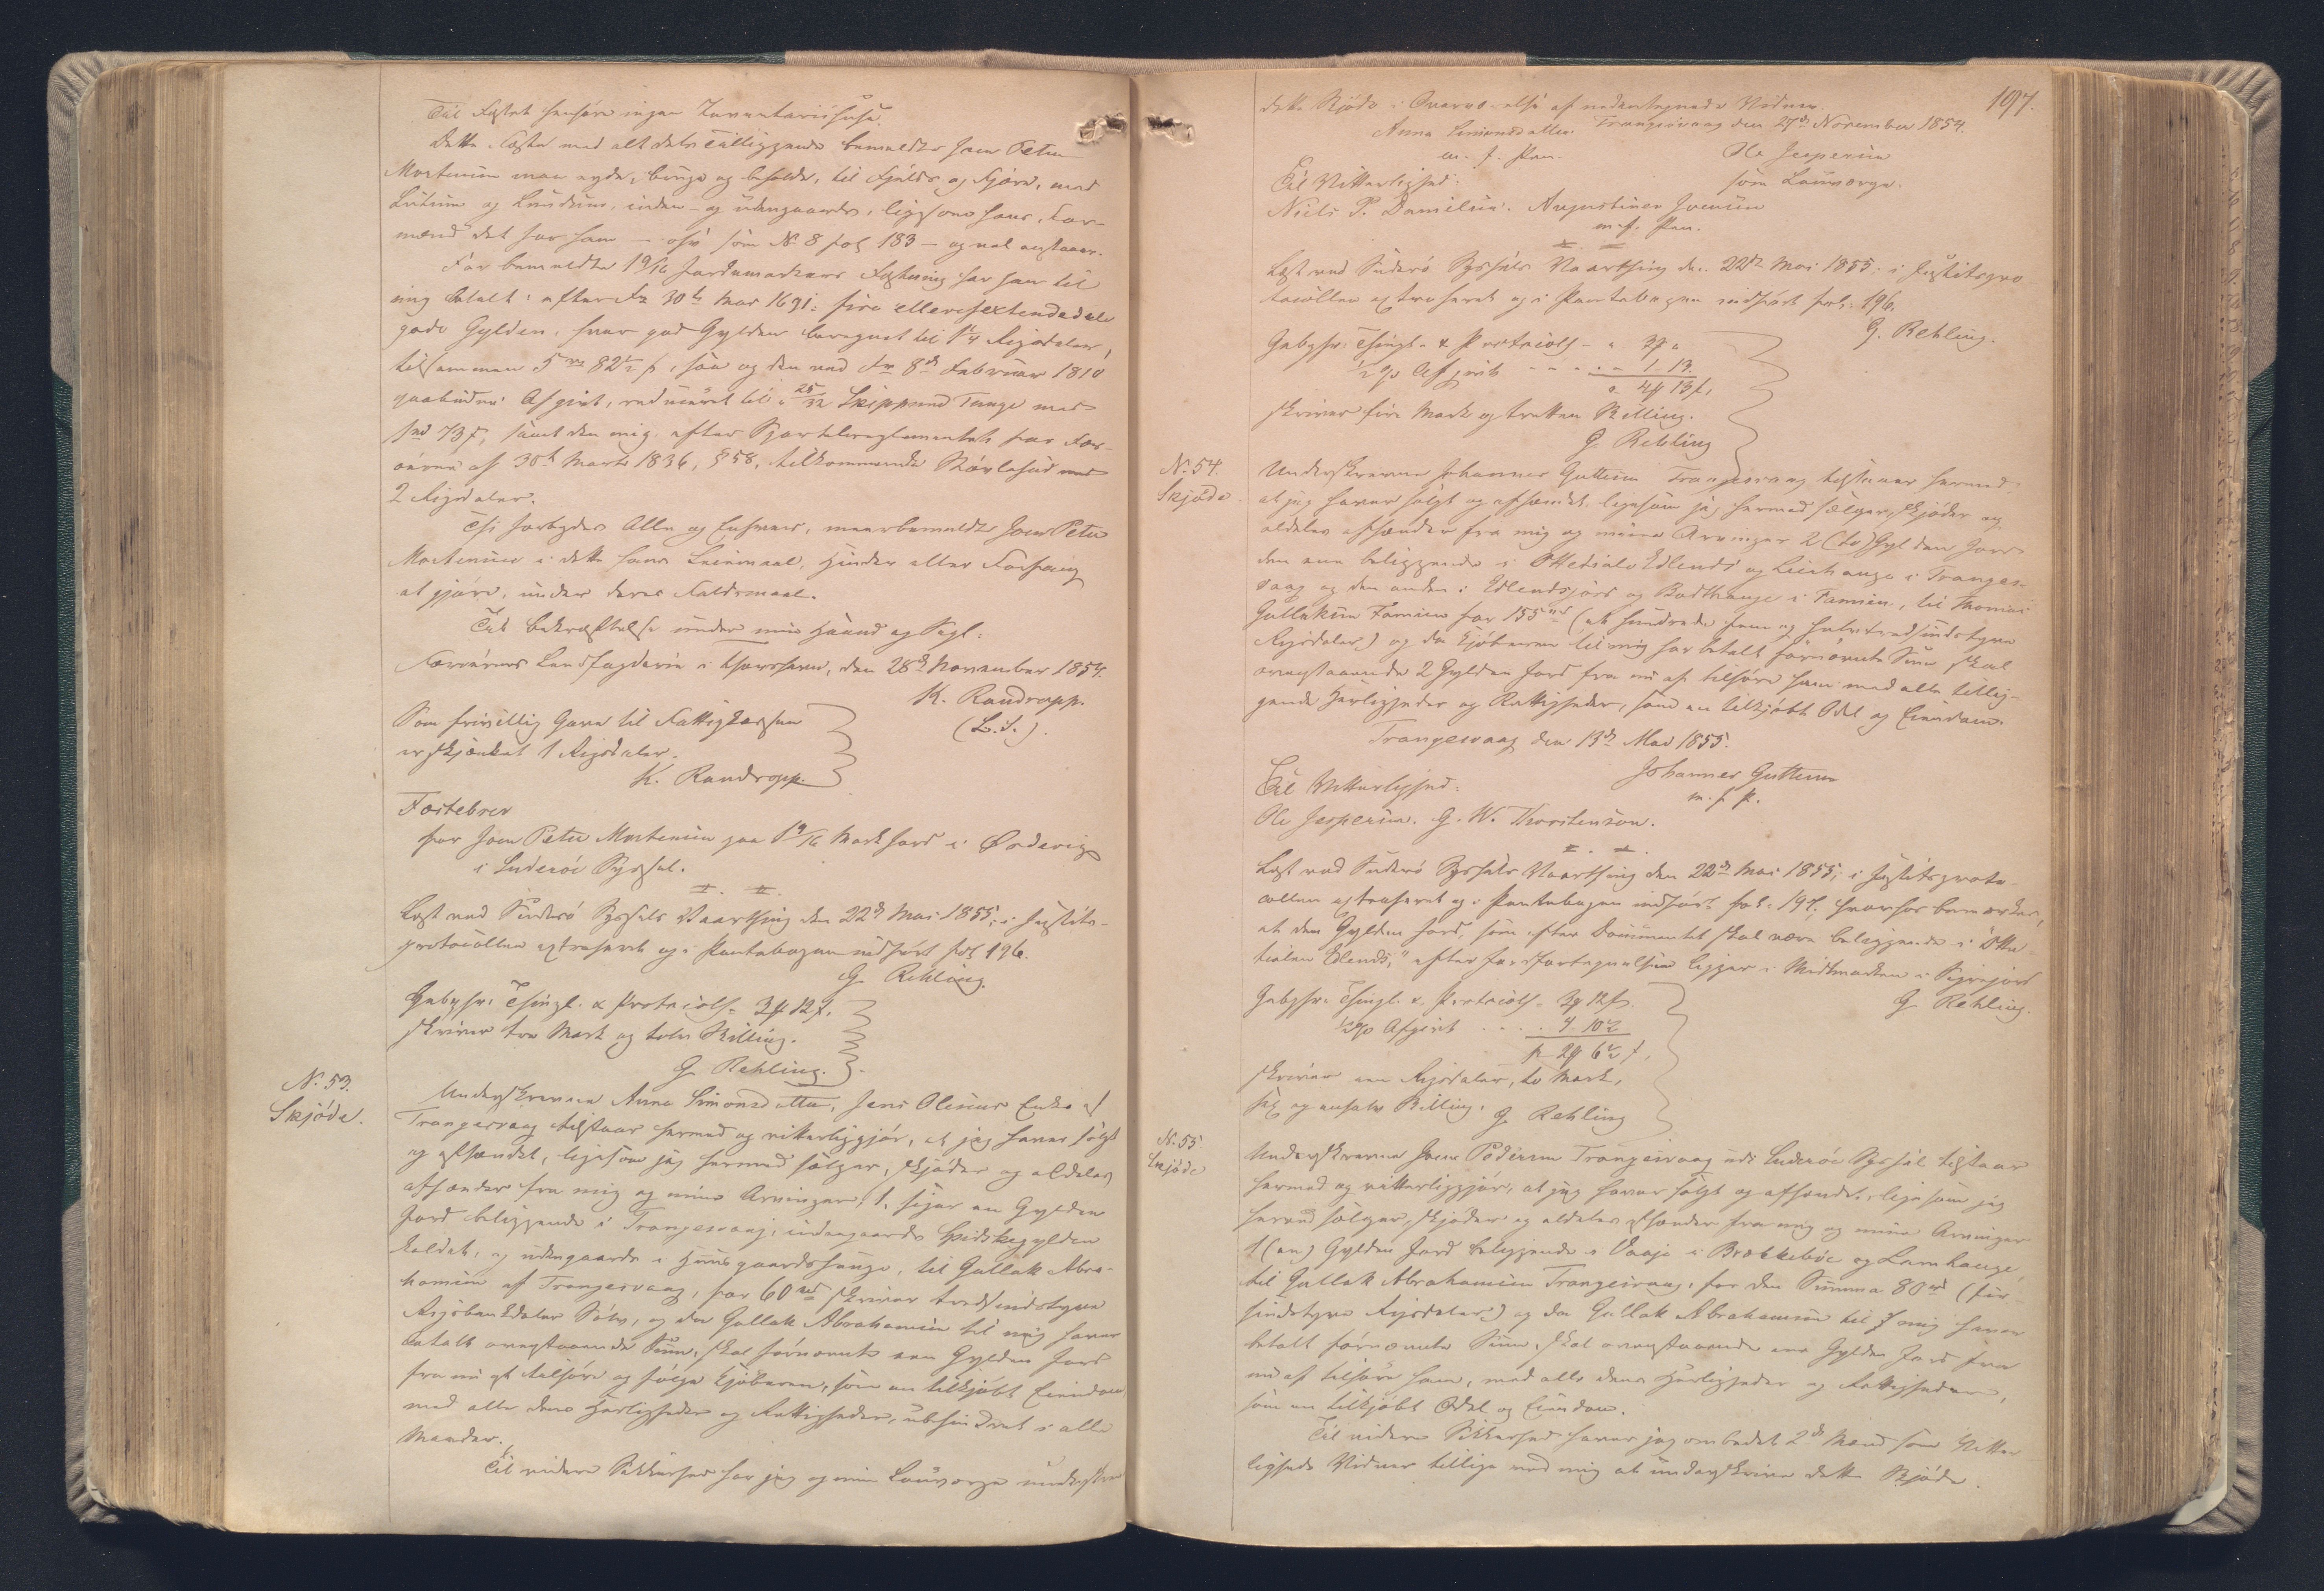 Til Fæstet henhører ingen Inventariihuse.
Dette Fæste med alt dets Tilliggende bemeldte Joen Peter
Mortensen maa nyde, bruge og beholde, til Fjelds og Fjære, med
Lutum og Lundum, inden- og udengaards, ligesom hans For-
mænd det før ham — osv som No 8 fol 183 — og ved
For bemeldte 1 9/16 Jordemarkers Fæstning har han til
mig betalt: efter Fr 30te Mai 1691: fire sextendedele
gode Gylden, hver god Gylden beregnet til 1 1/4 Rigsdaler,
tilsammen 5 rd 82 1/2 s, saa og den ved Fr 8de Februar 1810
paabudne Afgivt, reduceret til 25/32 Skippund Tunge med
73 s, samt den mig efter Sportelreglementet for Fær-
øerne af 30te Marts 1836, § 58, tilkommende med
2 Rigsdaler.
Thi forbydes Alle og Enhver, meerbemeldte Joen Peter
Mortensen i dette hans Leiemaal, Hinder eller Forfang
at gjøre, under deres Faldsmaal.
Til Bekræftelse under min Haand og Segl.
Færøernes Landfogderie i Thorshavn, den 28de November 1854.
K. Randropp.
(L.S.).
Som frivillig Gave til Fattigkassen
er skjænket 1 Rigsdaler.
K. Randropp.
Fæstebrev
for Joen Peter Mortensen paa 1 9/16 Mark Jord i Ørdevig
i Suderøe Syssel.
Læst ved Suderø Syssels Vaarthing den 22de Mai 1855; i Justits-
protocollen extraheret og i Pantebogen indført fol 196.
G. Rehling.
Gebyhr: Thingl. & Protocoll. 3 # 12 s.
skriver tre Mark og tolv Skilling.
G. Rehling.
No. 53.
Skjøde.
Underskrevne Anna Simonsdatter, Jens Olesens Enke af
Trangesvaag tilstaaer hermed og vitterliggjør, at jeg haver solgt
og afhændet, ligesom jeg hermed sælger, skjøder og aldeles
afhænder fra mig og mine Arvinger, 1, siger en Gylden
Jord beliggende i Trangesvaag, indengaards Spidskegylden
kaldet, og udengaards i Huusgaardshauge, til Gullak Abra-
hamsen af Trangesvaag, for 60 rd skriver tredsindstyve
Rigsbankdaler Sølv, og da Gullak Abrahamsen til mig haver
betalt ovenstaaende Sum, skal førnævnte een Gylden Jord
fra nu af tilhøre og følge Kjøberen, som en tilkjøbt Eiendom
med alle dens Herligheder og Rettigheder, ubehindret i alle
Maader.
Til videre Sikkerhed har jeg og min Laugværge underskrevet
197.
dette Skjøde i Overværelse af undertegnede Vidner.
Trangisvaag den 27de November 1854.
Anna Simonsdatter
m. f. Pen.
Ole Jespersen
som Laugværge.
Til Vitterlighed:
Niels P. Danielsen. Augustinus Joensen
m. f. Pen.
Læst ved Suderø Syssels Vaarthing den 22de Mai 1855; i Justitspro-
tocollen extraheret og i Pantebogen indført fol: 196.
G. Rehling.
Gebyhr: Thingl. & Protocoll - " 3 # "
1/2 % Afgivt - - - - " 1 - 13.
" 4 # 13 s,
skriver fire Mark og tretten Skilling.
G. Rehling
No. 54.
Skjøde
Underskrevne Johannes Guttesen Trangesvaag tilstaaer hermed
at jeg haver solgt og afhændet, ligesom jeg hermed sælger, skjøder og
aldeles afhænder fra mig og mine Arvinger 2 (to) Gylden Jord
den ene beliggende i Ottetials Edlends og Leirhauge i Tranges-
vaag og den anden i Edlendsjord og Bødthauge i Famien, til Thomas
Gullaksen Famien for 155 rd (et hundrede fem og halvtredsindstyve
Rigsdaler) og da Kjøberen til mig har betalt førnævnte Sum skal
ovenstaaende 2 Gylden Jord fra nu af tilhøre ham med alle tillig-
gende Herligheder og Rettigheder, som en tilkjøbt Odel og Eiendom.
Trangesvaag den 13de Mai 1855.
Johannes Guttesen
m. f. P.
Til Vitterlighed:
Ole Jespersen. G. W. Thorstenson.
Læst ved Suderø Syssels Vaarthing den 22de Mai 1855; i Justitsproto-
collen extraheret og i Pantebogen indført fol: 197; hvorhos bemærkes,
at den Gylden Jord, som efter Documentet skal være beliggende i "Otte-
tialen Edlends," efter Jordfortegnelsen ligger i
G. Rehling.
Gebyhr: Thingl. & Protocoll - 3 # 12 s.
1/2 % Afgivt - - - 4 - 10 1/2
1 - 2 # 6 1/2 s,
skriver een Rigsdaler, to Mark,
sex og en halv Skilling. G. Rehling
No. 55
Skjøde
Underskrevne Joen Pedersen Trangisvaag udi Suderøe Syssel tilstaaer
hermed og vitterliggjør, at jeg haver solgt og afhændet, ligesom jeg
hermed sælger, skjøder og aldeles afhænder fra mig og mine Arvinger
1 (en) Gylden Jord beliggende i Vaaje i Brækkebøe og Lamhauge,
til Gullak Abrahamsen Trangisvaag, for den Summa 80 rd (fiir-
sindstyve Rigsdaler) og da Gullak Abrahamsen til mig haver
betalt førnævnte Sum, skal ovenstaaende ene Gylden Jord fra
nu af tilhøre ham, med alle dens Herligheder og Rettigheder,
som en tilkjøbt Odel og Eiendom.
Til videre Sikkerhed haver jeg ombedet 2de Mænd som Vitter-
ligheds Vidner tillige med mig at underskrive dette Skjøde.